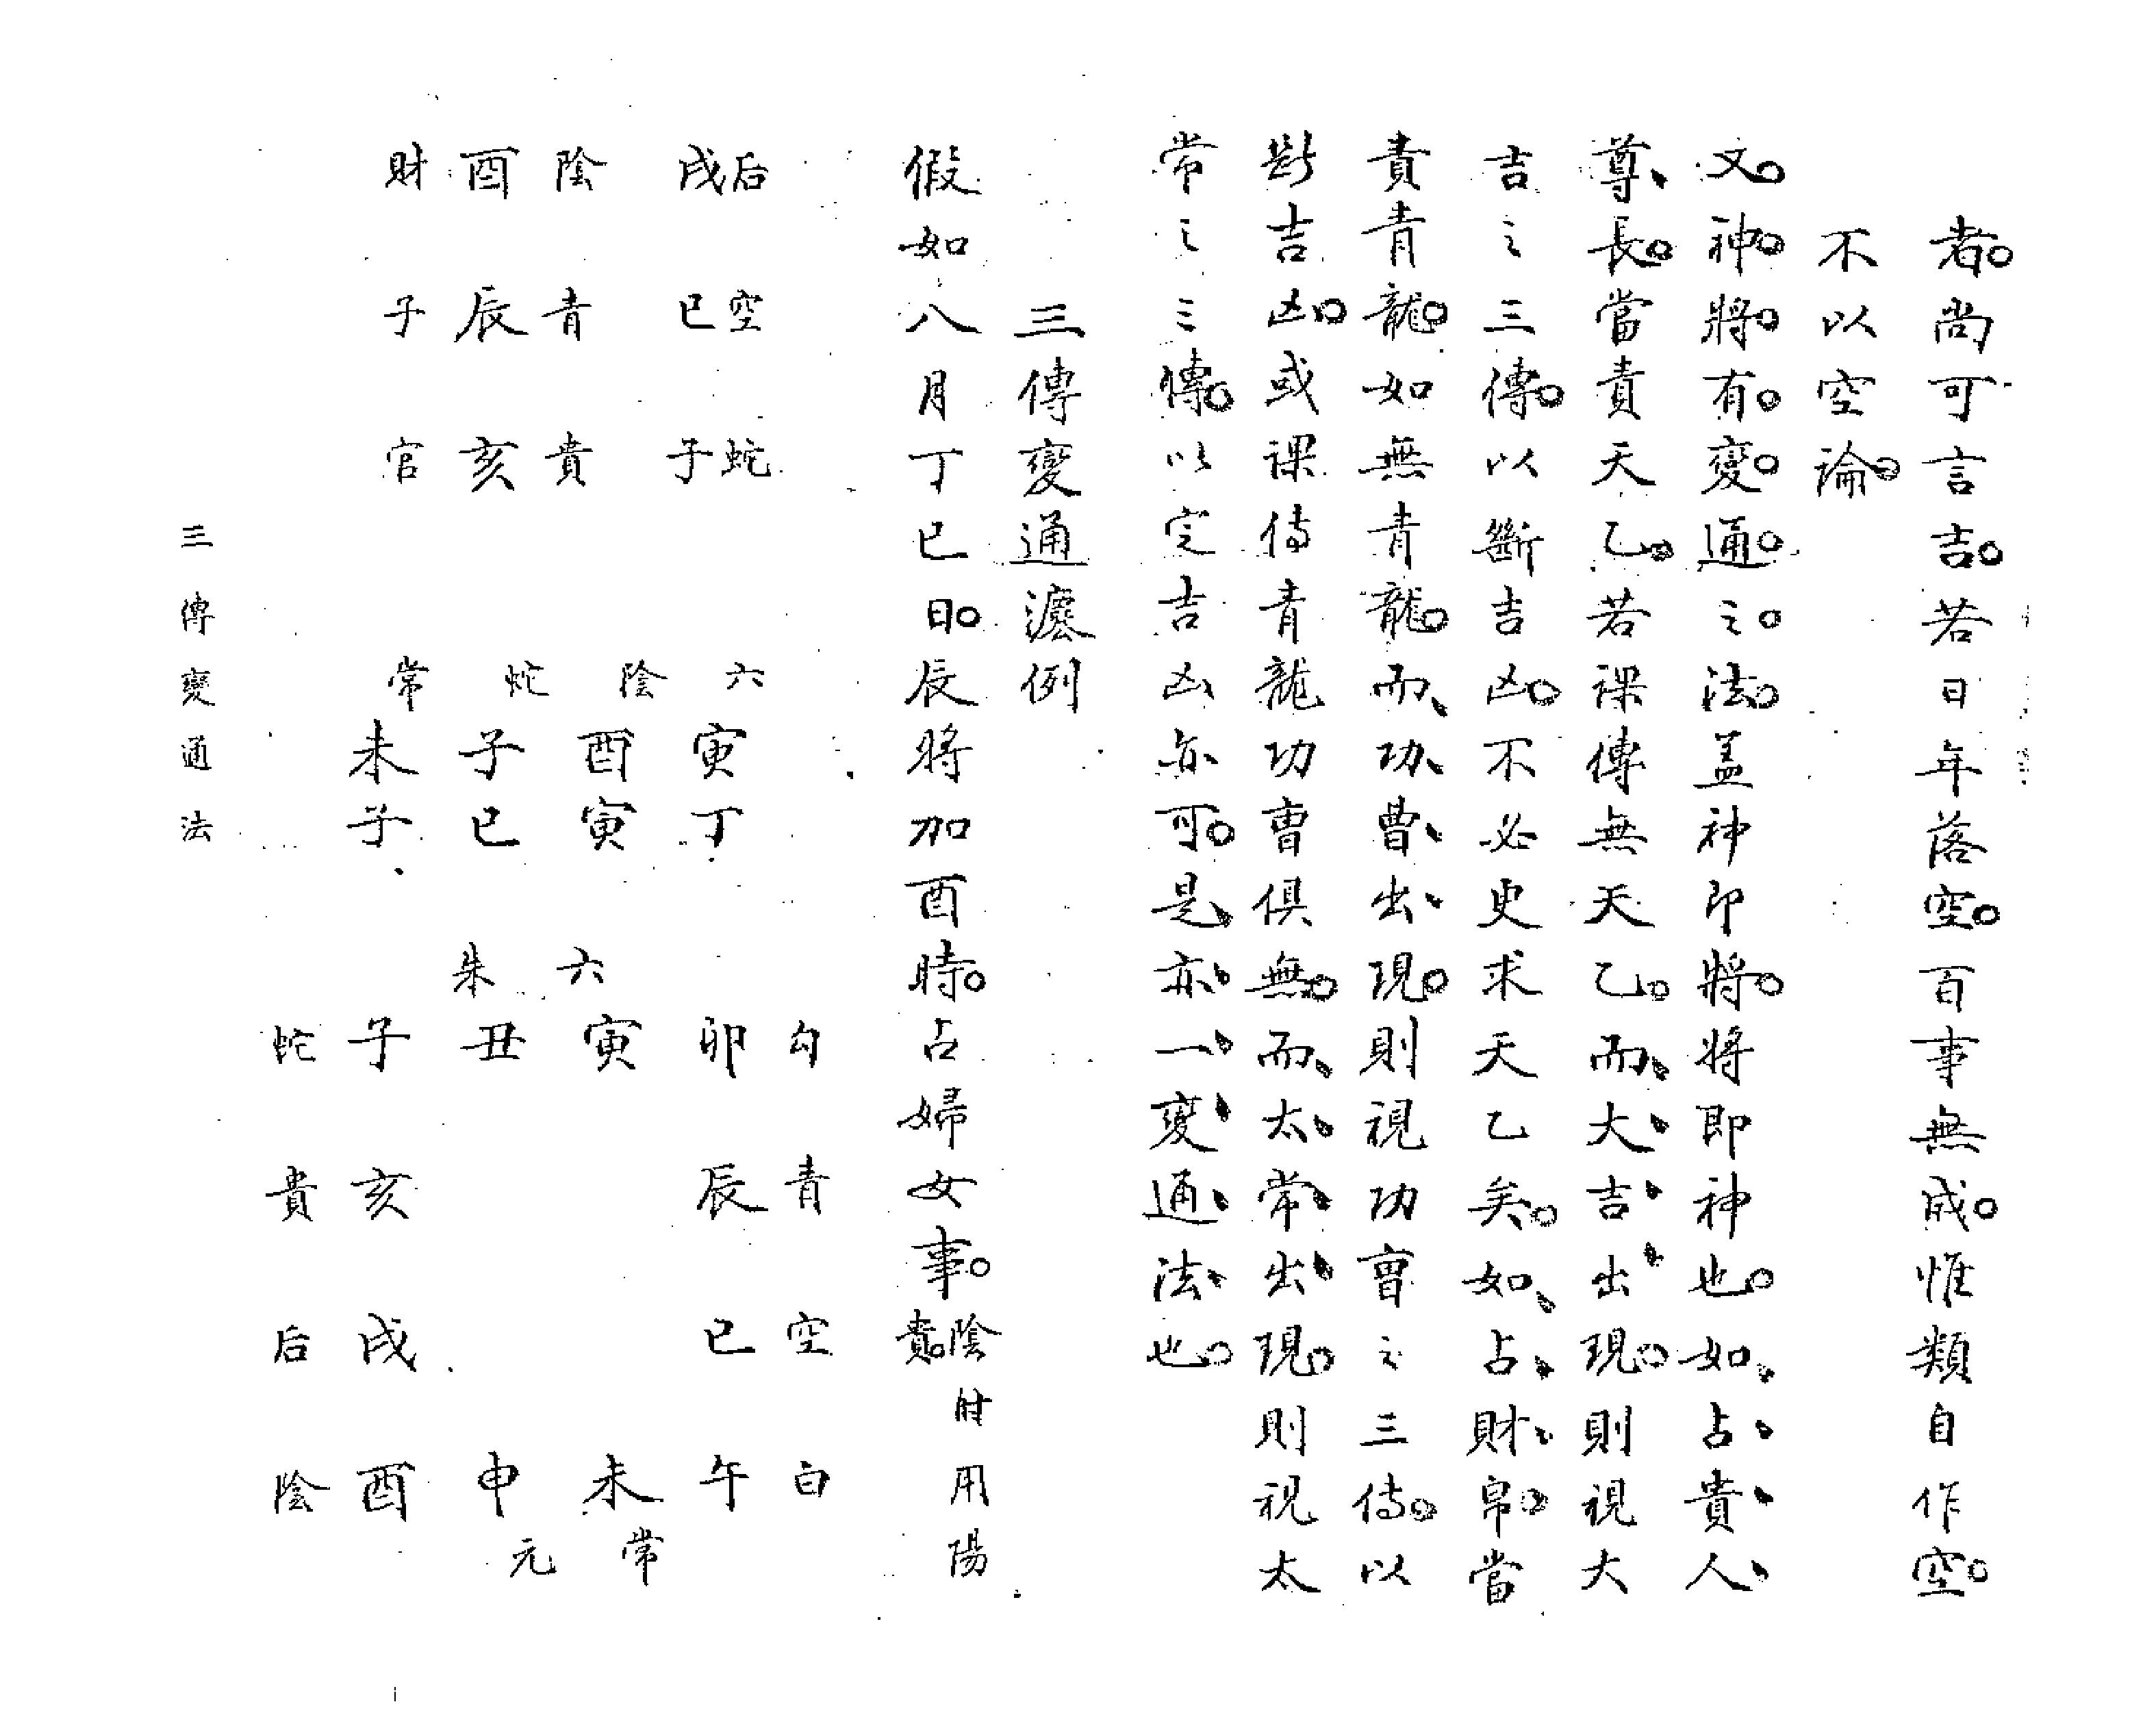 者尚可言吉若日年落空百事無成惟類自作空
不以空論
文神將有變通之法蓋神即將將即神也如占貴人
尊長當責天乙若課傳無天乙而大吉出現則視大
吉之三傳以斷吉凶不必更求天乙矣如占財帛當
責青龍如無青龍而功曹出現則視功曹之三傳以
断吉凶或課傳青龍功曹俱無而太常出現則視太
常之三傳以定吉凶亦可是亦一變通法也
三傳變通灋例
假如八月丁巳日辰將加酉時占婦女事陰時用陽貴
戌后 巳空 子蛇
酉陰 辰青 亥貴
財 子 官
六 陰 蛇 常
寅 酉 子 未
丁 寅 巳 子
六 朱
勾 卯 寅 丑 子 蛇
青 辰 亥 貴
空 巳 戌 后
白 午 未 申 酉 陰
常 元
三傳變通法